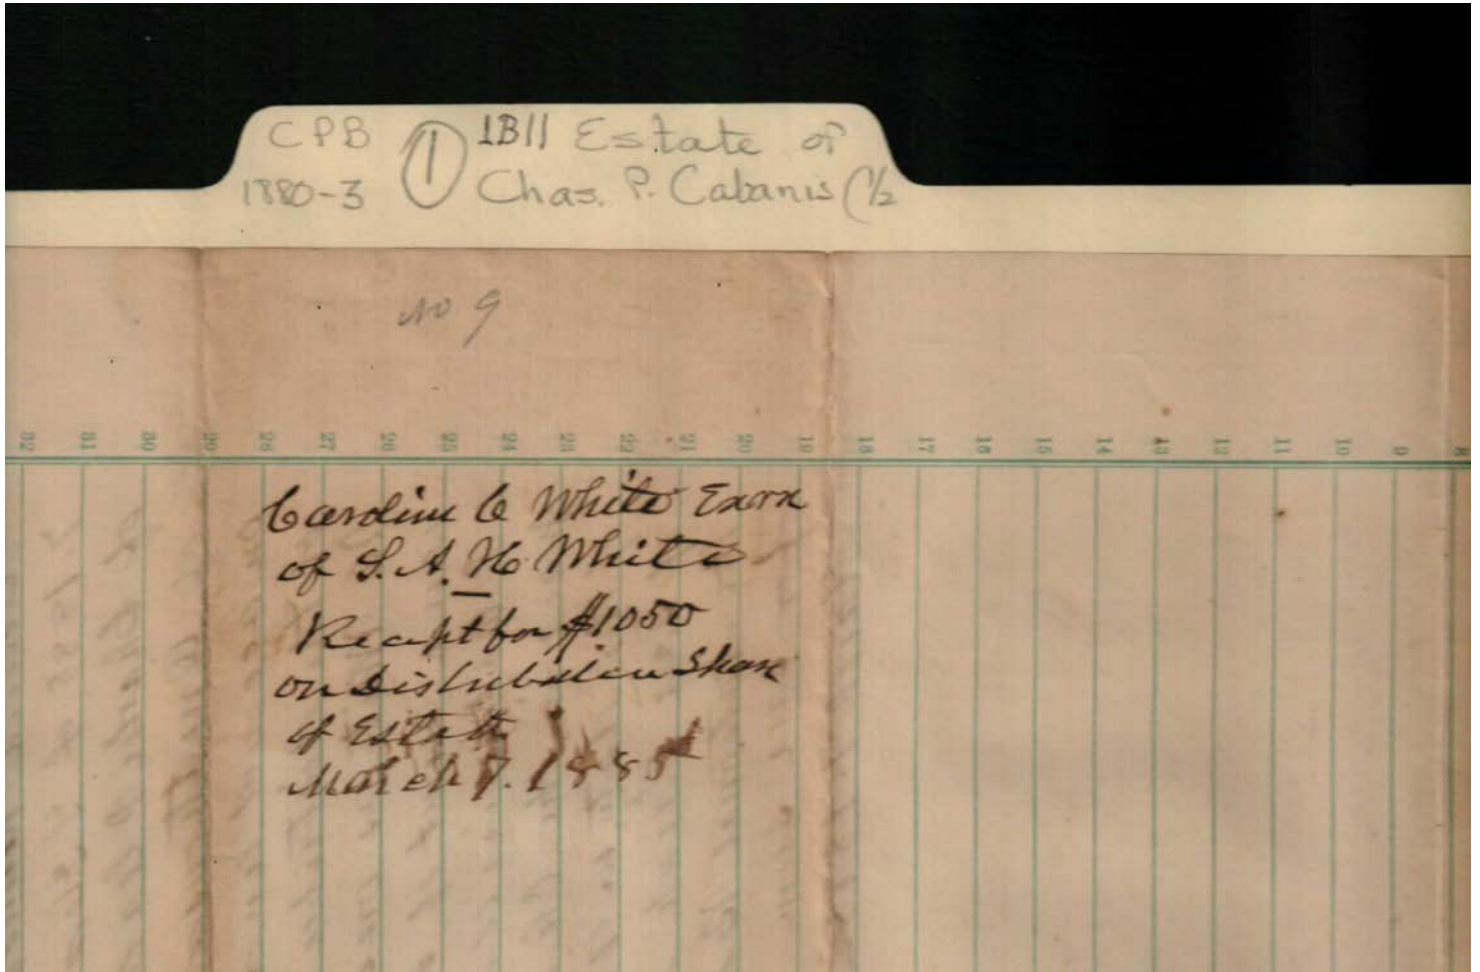 CPB ① 1B11 Estate of
1880-3 Chas. P. Cabanis (1/2
No 9
32 31 30 29 28 27 26 25 24 23 22 21 20 19 18 17 16 15 14 13 12 11 10 9 8
Caroline C White Exrx
of S. A. H White
Receipt for $1050
on Distributive Share
of Estate
March 7. 1885